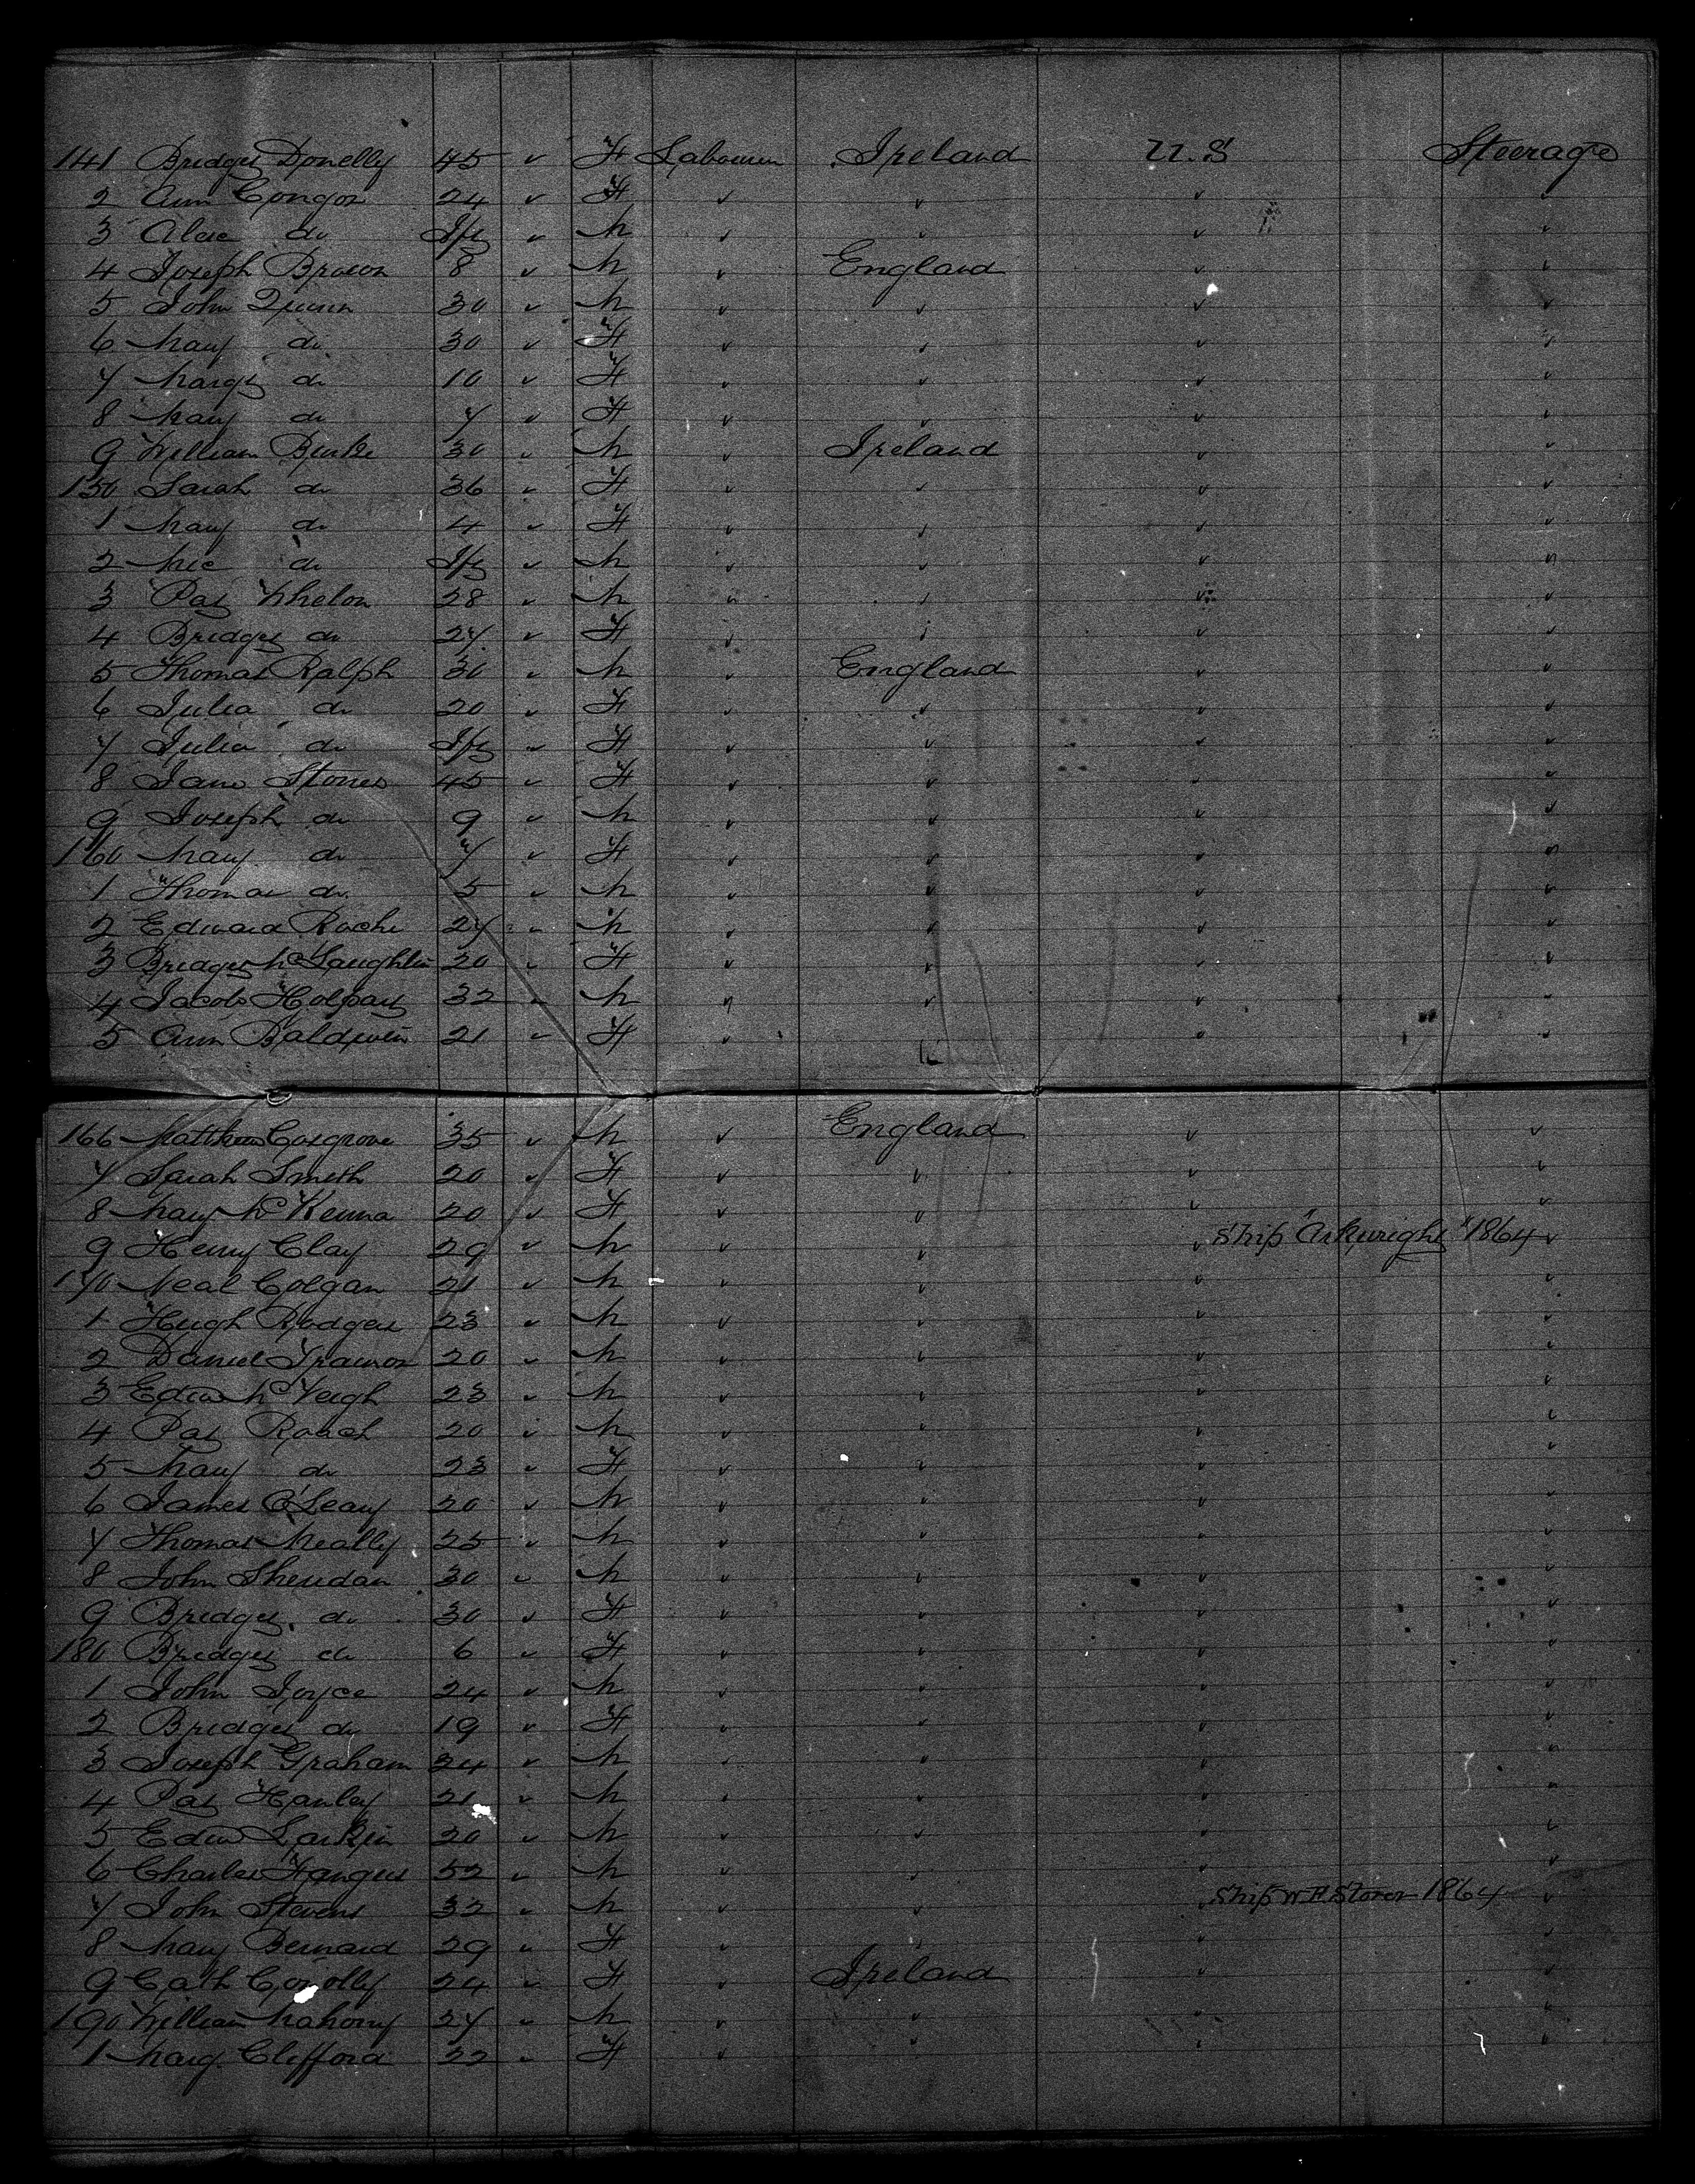 141 Bridget Donelly 45 " F Labourer Ireland U.S Steerage
2 Ann Congor 24 " F " " " "
3 do Inf " M " " " "
4 Joseph Brown 8 " M " England " "
5 John Quinn 30 " M " " " "
6 Mary do 30 " F " " " "
7 Margt do 10 " F " " " "
8 Mary do 7 " F " " " "
9 William Burke 30 " M " Ireland " "
150 Sarah do 36 " F " " " "
1 Mary do 4 " F " " " "
2 Mic do Inf " M " " " "
3 Pat Whelon 28 " M " " " "
4 Bridget do 27 " F " " " "
5 Thomas Ralph 30 " M " England " "
6 Julia do 20 " F " " " "
7 Julia do Inf " F " " " "
8 Jane Stones 45 " F " " " "
9 Joseph do 9 " M " " " "
160 Mary do 7 " F " " " "
1 Thomas do 5 " M " " " "
2 Edward Roche 27 " M " " " "
3 Bridget McLaughlin 20 " F " " " "
4 Jacob 32 " M " " " "
5 Ann Baldwin 21 " F " " "
166 Matthew Cosgrove 35 " M " England " "
7 Sarah Smith 20 " F " " " "
8 Mary McKenna 20 " F " " " "
9 Henry Clay 29 " M " " " Ship "Arkwright" 1864 "
170 Neal Colgan 21 " M " " " "
1 Hugh Rodgers 23 " M " " " "
2 Daniel Trainor 20 " M " " " "
3 Edwd McVeigh 23 " M " " " "
4 Pat Roach 20 " M " " " "
5 Mary do 23 " F " " " "
6 James O'Leary 20 " M " " " "
7 Thomas Meally 25 " M " " " "
8 John Sheridan 30 " M " " " "
9 Bridget do 30 " F " " " "
180 Bridget do 6 " F " " " "
1 John Joyce 24 " M " " " "
2 Bridget do 19 " F " " " "
3 Joseph Graham 24 " M " " " "
4 Pat Hanley 21 " M " " " "
5 Edwd Larkin 20 " M " " " "
6 Charles 52 " M " " " "
7 John Stevens 32 " M " " " Ship W F Storer 1864 "
8 Mary Bernard 29 " F " " " "
9 Cath Conolly 24 " F " Ireland " "
190 William Mahony 27 " M " " " "
1 Marg. Clifford 22 " F " " " "